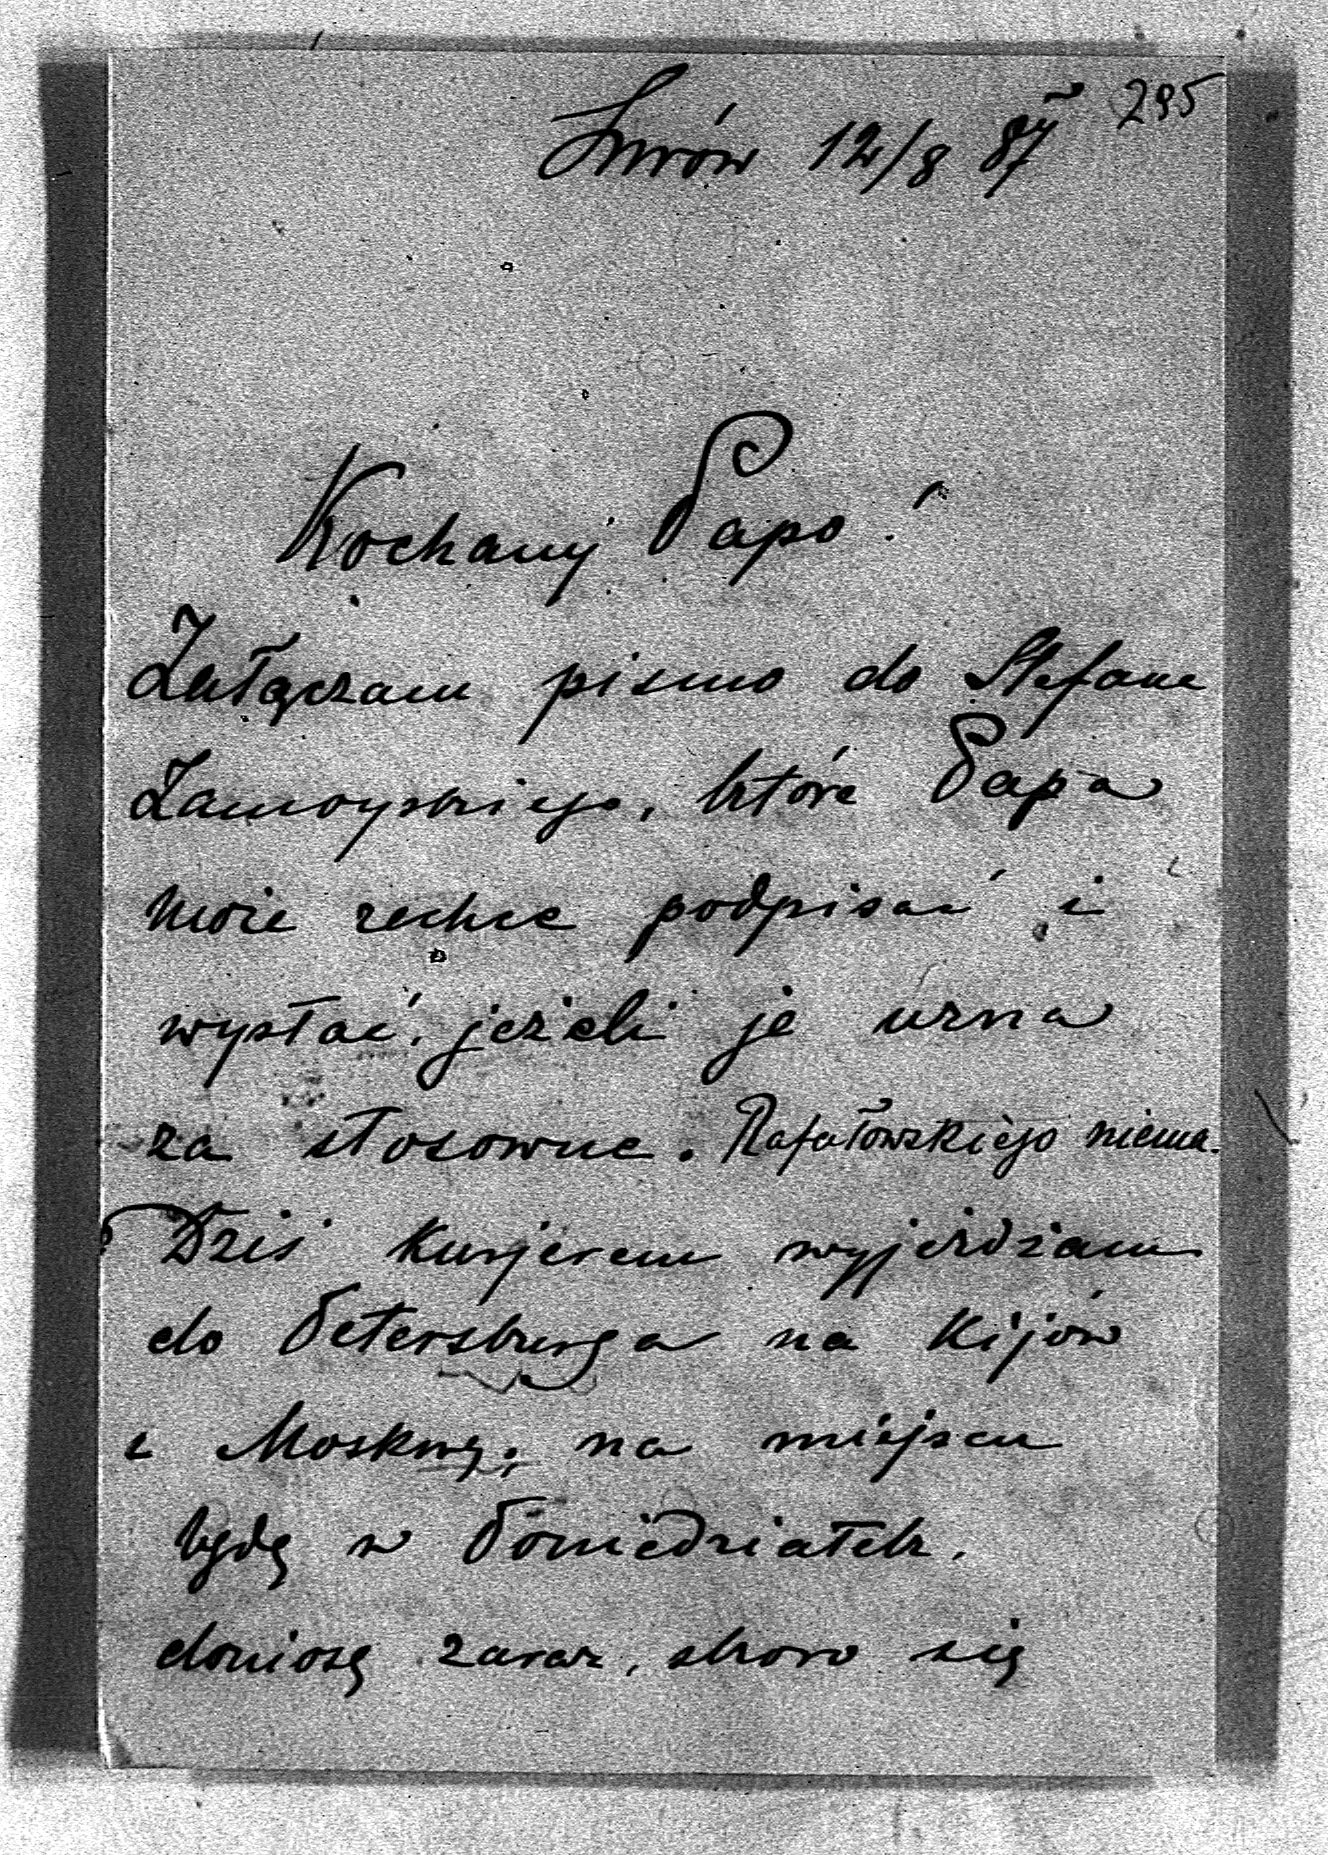 295
Lwów 12/8 87
Kochany Papo!
Załączam pismo do Stefana
Zamoyskiego, które Papa
może zechce podpisać i
wysłać, jeżeli je uzna
za stosowne. Rafałowskiego niema.
Dziś kurjerem wyjeżdżam
do Petersburga na Kijów
i Moskwę, na miejscu
będę w Poniedziałek.
doniosę zaraz, skoro się